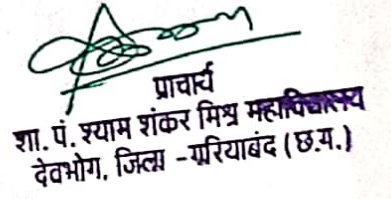 प्राचार्य
शा. पं. श्याम शंकर मिश्र महाविद्यालय
देवभोग, जिला - गरियाबंद (छ.ग.)